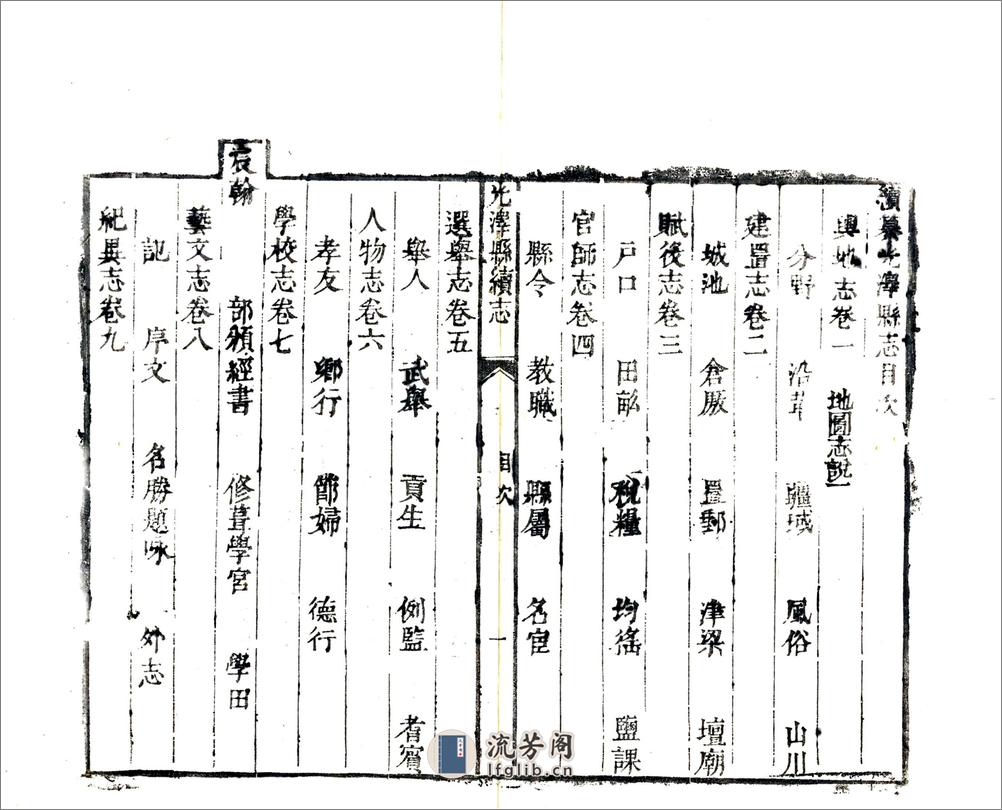 續纂光澤縣志目次
輿地志卷一 地圖志說
分野 沿革 疆域 風俗 山川
建置志卷二
城池 倉廒 置郵 津梁 壇廟
賦役志卷三
戶口 田畝 稅糧 均徭 鹽課
官師志卷四
縣令 教職 縣屬 名宦
光澤縣續志 目次 一
選舉志卷五
舉人 武舉 貢生 例監 耆賓
人物志卷六
孝友 鄉行 節婦 德行
學校志卷七
宸翰 部頒經書 修葺學宮 學田
藝文志卷八
記 序文 名勝題咏 外志
紀異志卷九
流芳阁
lfglib.cn